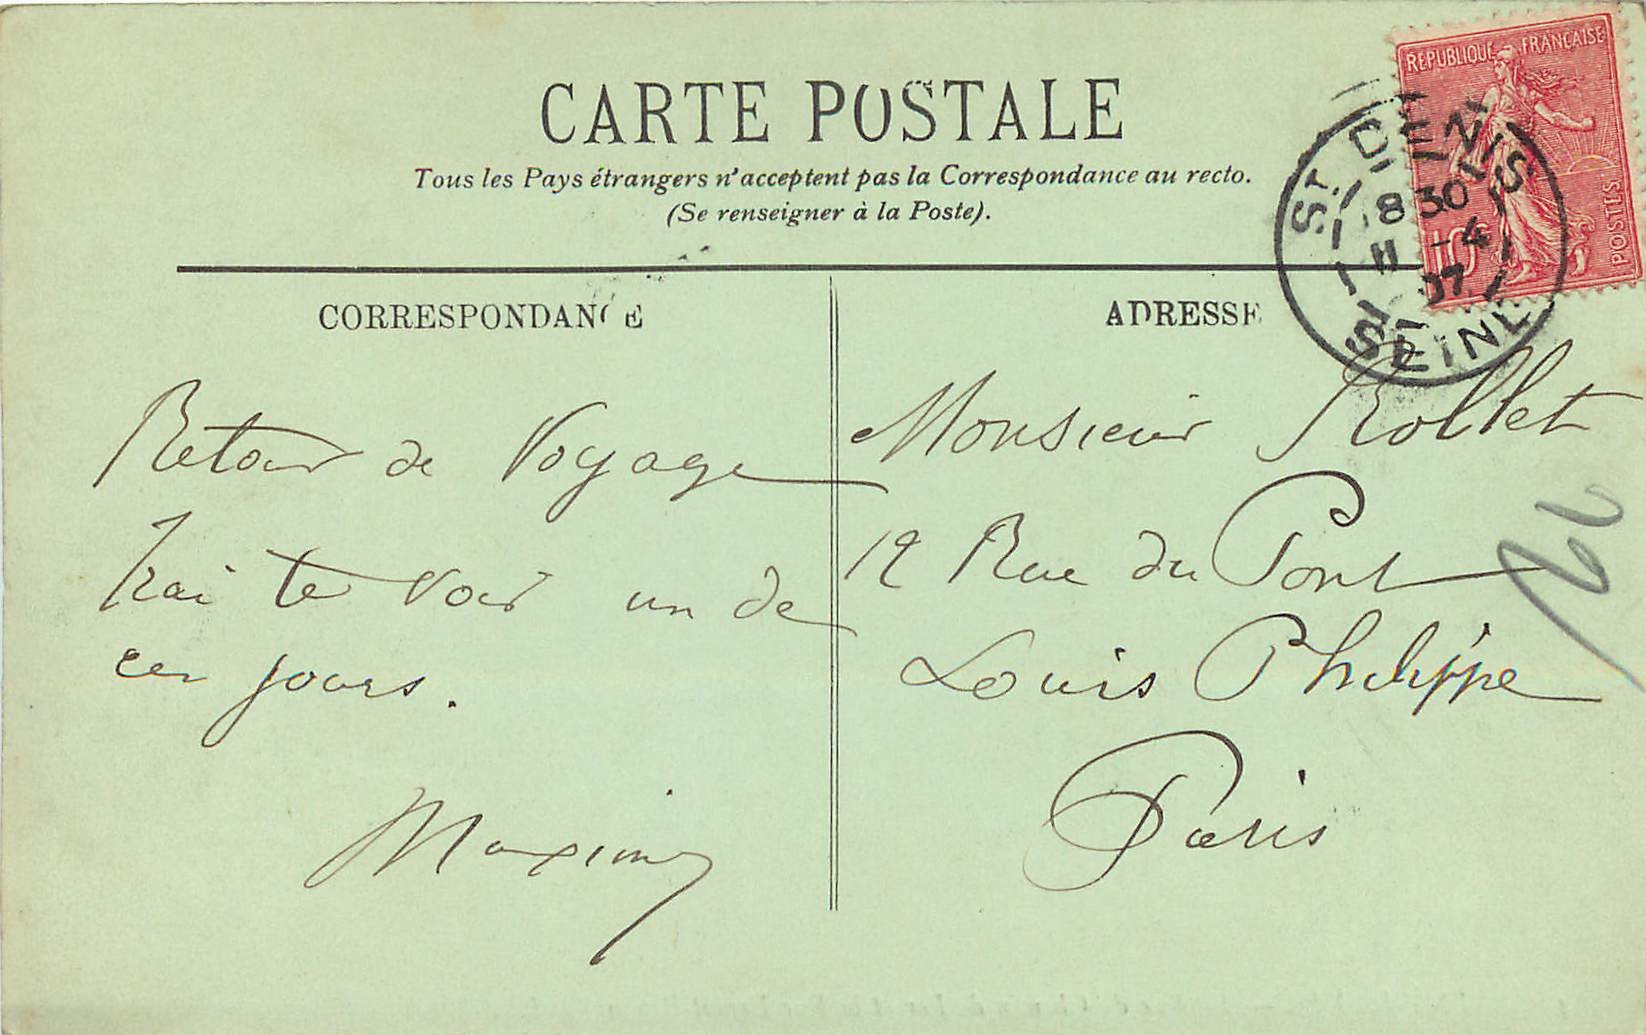 CARTE POSTALE
Tous les Pays étrangers n'acceptent pas la Correspondance au recto.
(Se renseigner à la Poste).
REPUBLIQUE FRANÇAISE
POSTES
10
ST DENIS
8 30
11 - 4
07
SEINE
CORRESPONDANCE
Retour de Voyage
Irai te voir un de
ces jours.
Maxime
ADRESSE
Monsieur Rollet
12 Rue du Pont
Louis Philippe
Paris